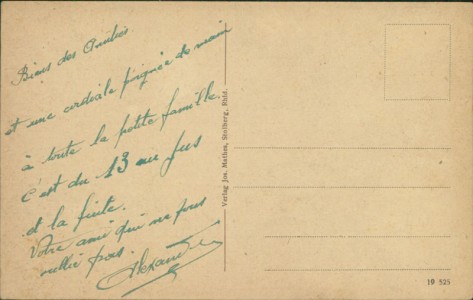 Biens des Amitiés
et une cordiale poignée de main
à toute la petite famille.
C'est du 13 au jus
et la fuite.
Votre ami qui ne vous
oublie pas.
Alexandre
Verlag Jos. Mathes, Stolberg, Rhld.
19 525